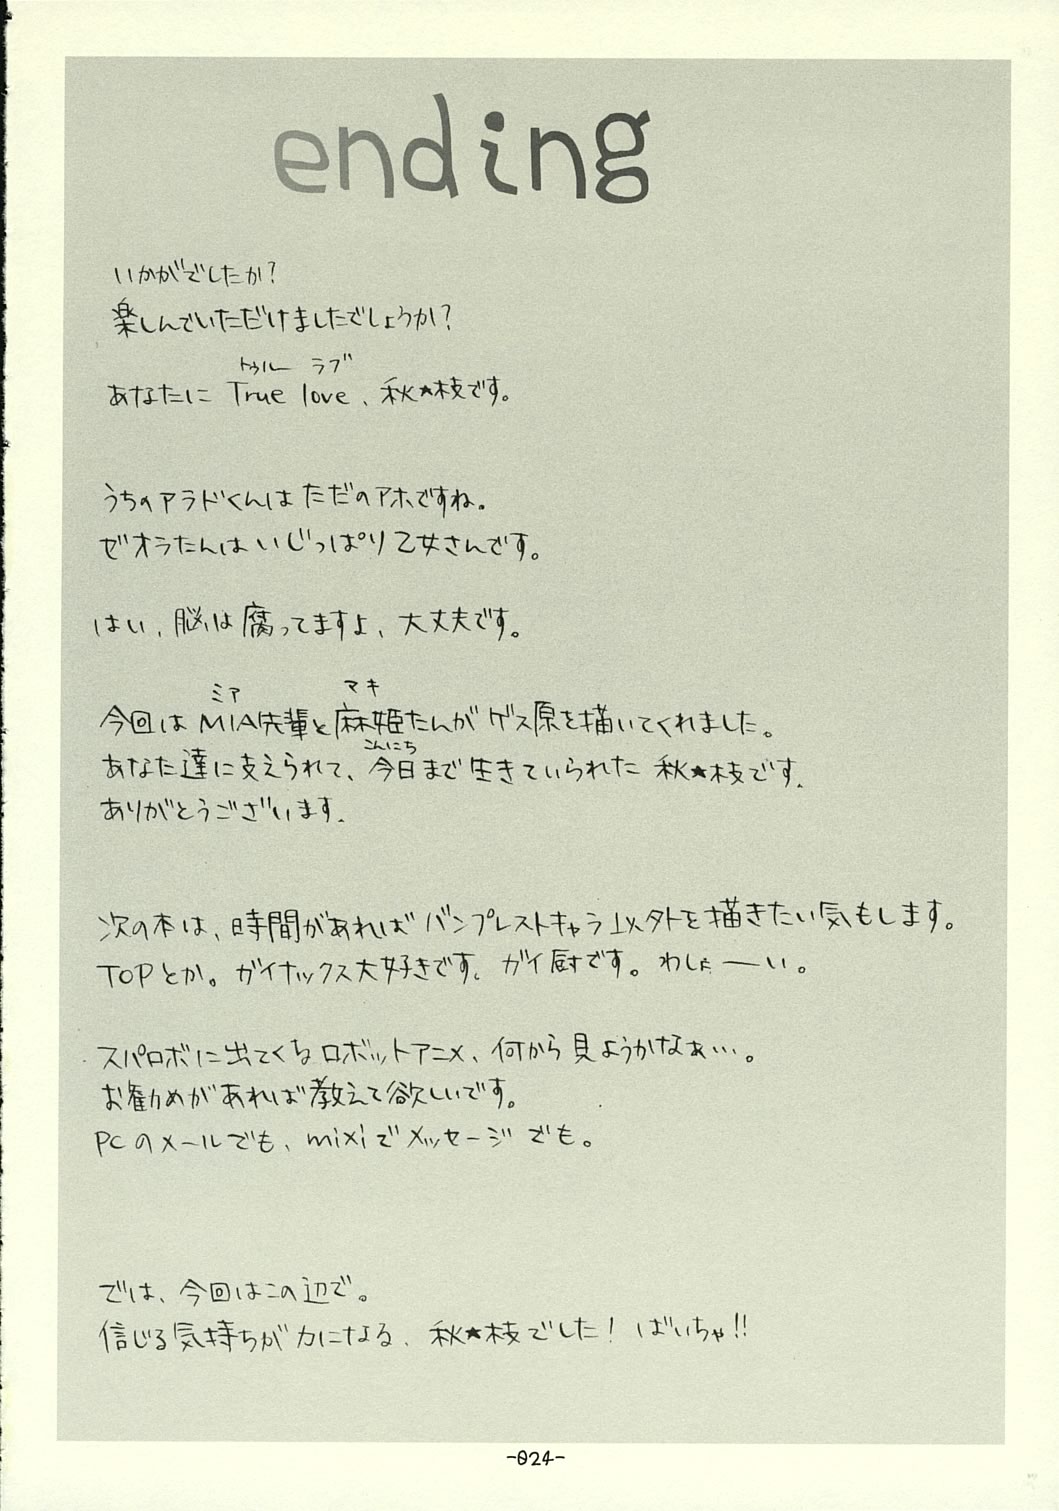 ending
いかがでしたか?
楽しんでいただけましたでしょうか?
トゥルー ラブ
あなたに True love、秋★枝です。
うちのアラドくんはただのアホですね。
ゼオラたんはいじっぱり乙女さんです。
はい、脳は腐ってますよ、大丈夫です。
ミア マキ
今回はMIA先輩と麻姫たんがゲス原を描いてくれました。
こんにち
あなた達に支えられて、今日まで生きていられた 秋★枝です。
ありがとうございます。
次の本は、時間があればバンプレストキャラ以外を描きたい気もします。
TOPとか。ガイナックス大好きです。ガイ厨です。わしょーい。
スパロボに出てくるロボットアニメ、何から見ようかなぁ…。
お勧めがあれば教えて欲しいです。
PCのメールでも、mixiでメッセージでも。
では、今回はこの辺で。
信じる気持ちが力になる、秋★枝でした! ばいちゃ!!
-024-